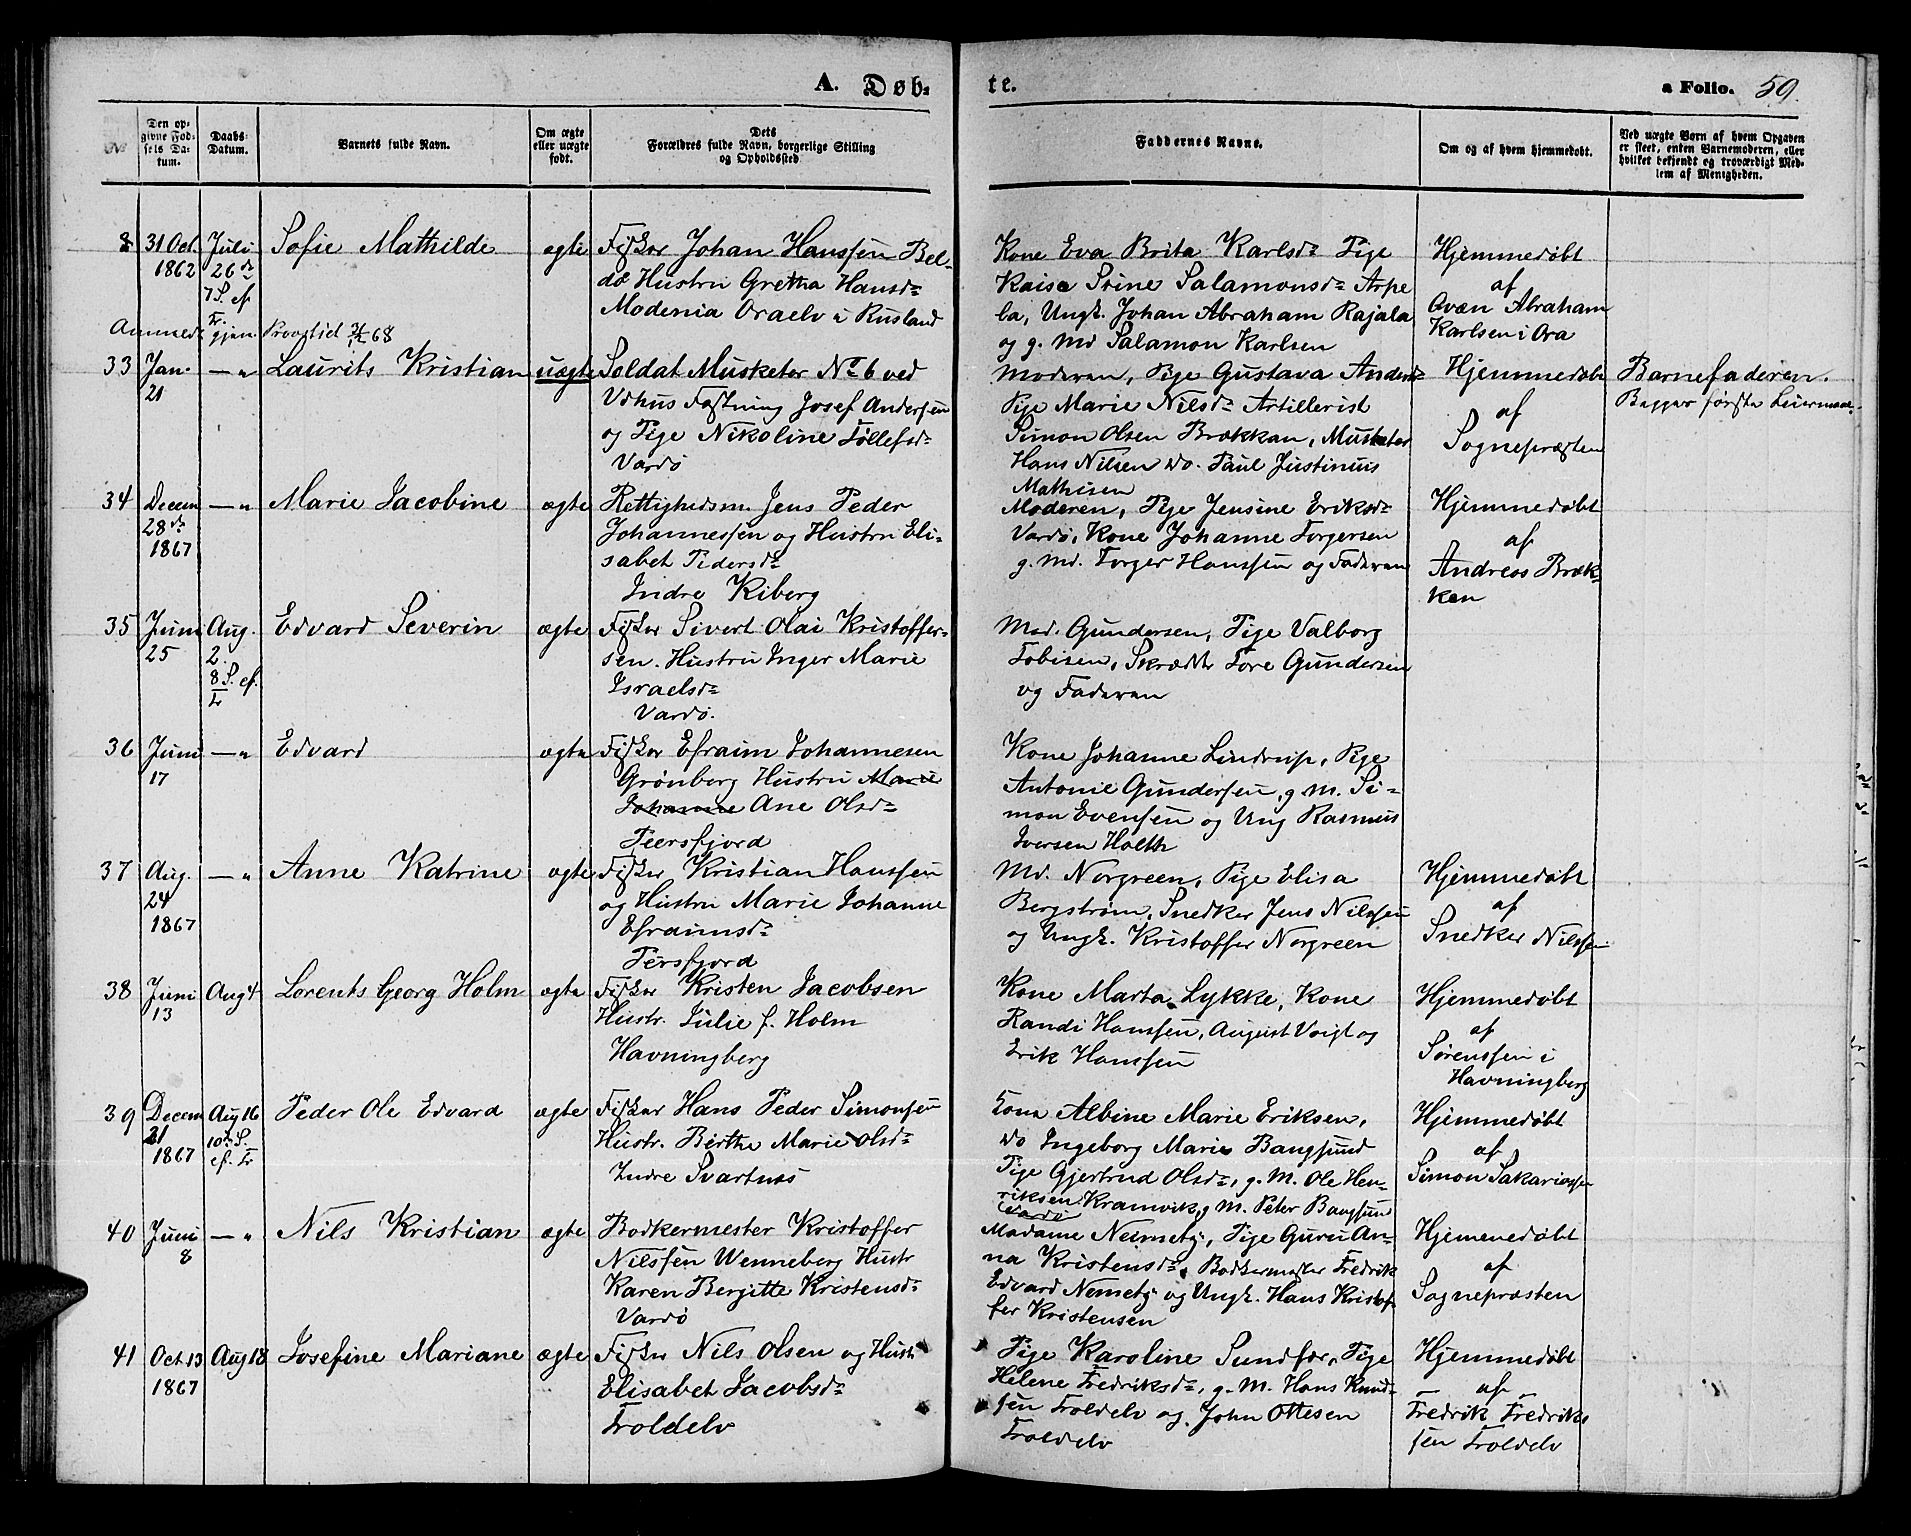 A. Døb-
te.
a Folio. 59.
No
Den op-
givne Fød-
sels Da-
tum.
Daabs-
Datum.
Barnets fulde Navn.
Om ægte
eller uægte
født.
Dets
Forældres fulde Navn, borgerlige Stilling
og Opholdssted
Faddernes Navne.
Om og af hvem hjemmedøbt.
Ved uægte Børn af hvem Opgaven
er skeet, enten Barnemoderen, eller
hvilket bekjendt og troværdigt Med-
lem af Menigheden.
8
31 Oct.
1862
Juli
26de
7 S. ef.
Tr.
Sofie Mathilde
ægte
Fisker Johan Hanssen Bel-
do Hustru Gretha Hansd.
Modenia Oraelv i Rusland
Kone Eva Brita Karlsd. Pige
Kaisa Stine Salamonsd. Arpe
la, Ungk. Johan Abraham Rajala
og g. Md Salamon Karlsen
Hjemmedøbt
af
Qvæn Abraham
Karlsen i Ora
Anmeldt gjen. Provstiet 68
33
Jan.
21
— "
Laurits Kristian
uægte
Soldat Musketer No 6 ved
Vdhus Fæstning Josef Andersen
og Pige Nikoline Tøllefsd.
Vardø
Moderen, Pige Gustava Andersd.
Pige Marie Nilsd. Artillerist
Simon Olsen Brækkan, Musketer
Hans Nilsen do. Paul Justinius
Mathisen
Hjemmedøbt
af
Sognepræsten
Barnefaderen.
Begges første Leiermaal.
34
Decem
28de
1867
— "
Marie Jacobine
ægte
Rettighedsm. Jens Peder
Johannessen og Hustru Eli-
sabet Pedersd.
Indre Kiberg
Moderen, Pige Jensine Eriksd.
Vardø, Kone Johanne Torgersen
g. Md. Torger Hanssen og Faderen
Hjemmedøbt
af
Andreas Bræk-
ken
35
Juni
25
Aug.
2.
8 S. ef.
Tr
Edvard Severin
ægte
Fisker Sivert Olai Kristoffer-
sen. Hustru Inger Marie
Israelsd.
Vardø.
Mad. Gundersen, Pige Valborg
Tobisen, Skrædr Tore Gundersen
og Faderen
36
Juni
17
— "
Edvard
ægte
Fisker Efraim Johannesen
Grønberg Hustru Marie
Johanne Ane Olsd.
Peersfjord
Kone Johanne Lindrup, Pige
Antonie Gundersen, g. M. Si-
mon Evensen og Ung Rasmus
Iversen Holth
37
Aug.
24
1867
— "
Anne Katrine
ægte
Fisker Kristian Hanssen
og Hustru Marie Johanne
Efraimsd.
Persfjord
Md. Norgreen, Pige Elisa
Bergstrøm, Snedker Jens Nilssen
og Ungk. Kristoffer Norgreen
Hjemmedøbt
af
Snedker Nilssen
38
Juni
13
Aug 4
Lorents Georg Holm
ægte
Fisker Kristen Jacobsen
Hustr. Julie f. Holm
Havningberg
Kone Marta Lykke, Kone
Randi Hanssen, August Voigt og
Erik Hanssen
Hjemmedøbt
af
Sørenssen i
Havningberg
39
Decem
21
1867
Aug 16
10de S.
ef. Tr
Peder Ole Edvard
ægte
Fisker Hans Peder Simonsen
Hustr. Birthe Marie Olsd.
Indre Svartnæs
Kone Albine Marie Eriksen,
do Ingeborg Marie Bangsund
Pige Gjertrud Olsd., g. M. Ole Hen-
riksen Kramvik, g M. Peter Bangsun
Vardø
Hjemmedøbt
af
Simon Sakariassen
40
Juni
8
— "
Nils Kristian
ægte
Bødkermester Kristoffer
Nilssen Wenneberg Hustr
Karen Bergitte Kristensd.
Vardø
Madame Neimetz, Pige Guru An-
na Kristensd., Bødkermester Fredrik
Edvard Nemetz og Ungk. Hans Kristof-
fer Kristensen
Hjemmedøbt
af
Sognepræsten
41
Oct 13
1867
Aug 18
Josefine Mariane
ægte
Fisker Nils Olsen og Hustr
Elisabet Jacobsd.
Troldelv
Pige Karoline Sundfær, Pige
Helene Fredriksd., g. M. Hans Knud-
sen Troldelv og John Ottesen
Troldelv
Hjemmedøbt
af
Fredrik Fredrik-
sen Troldelv